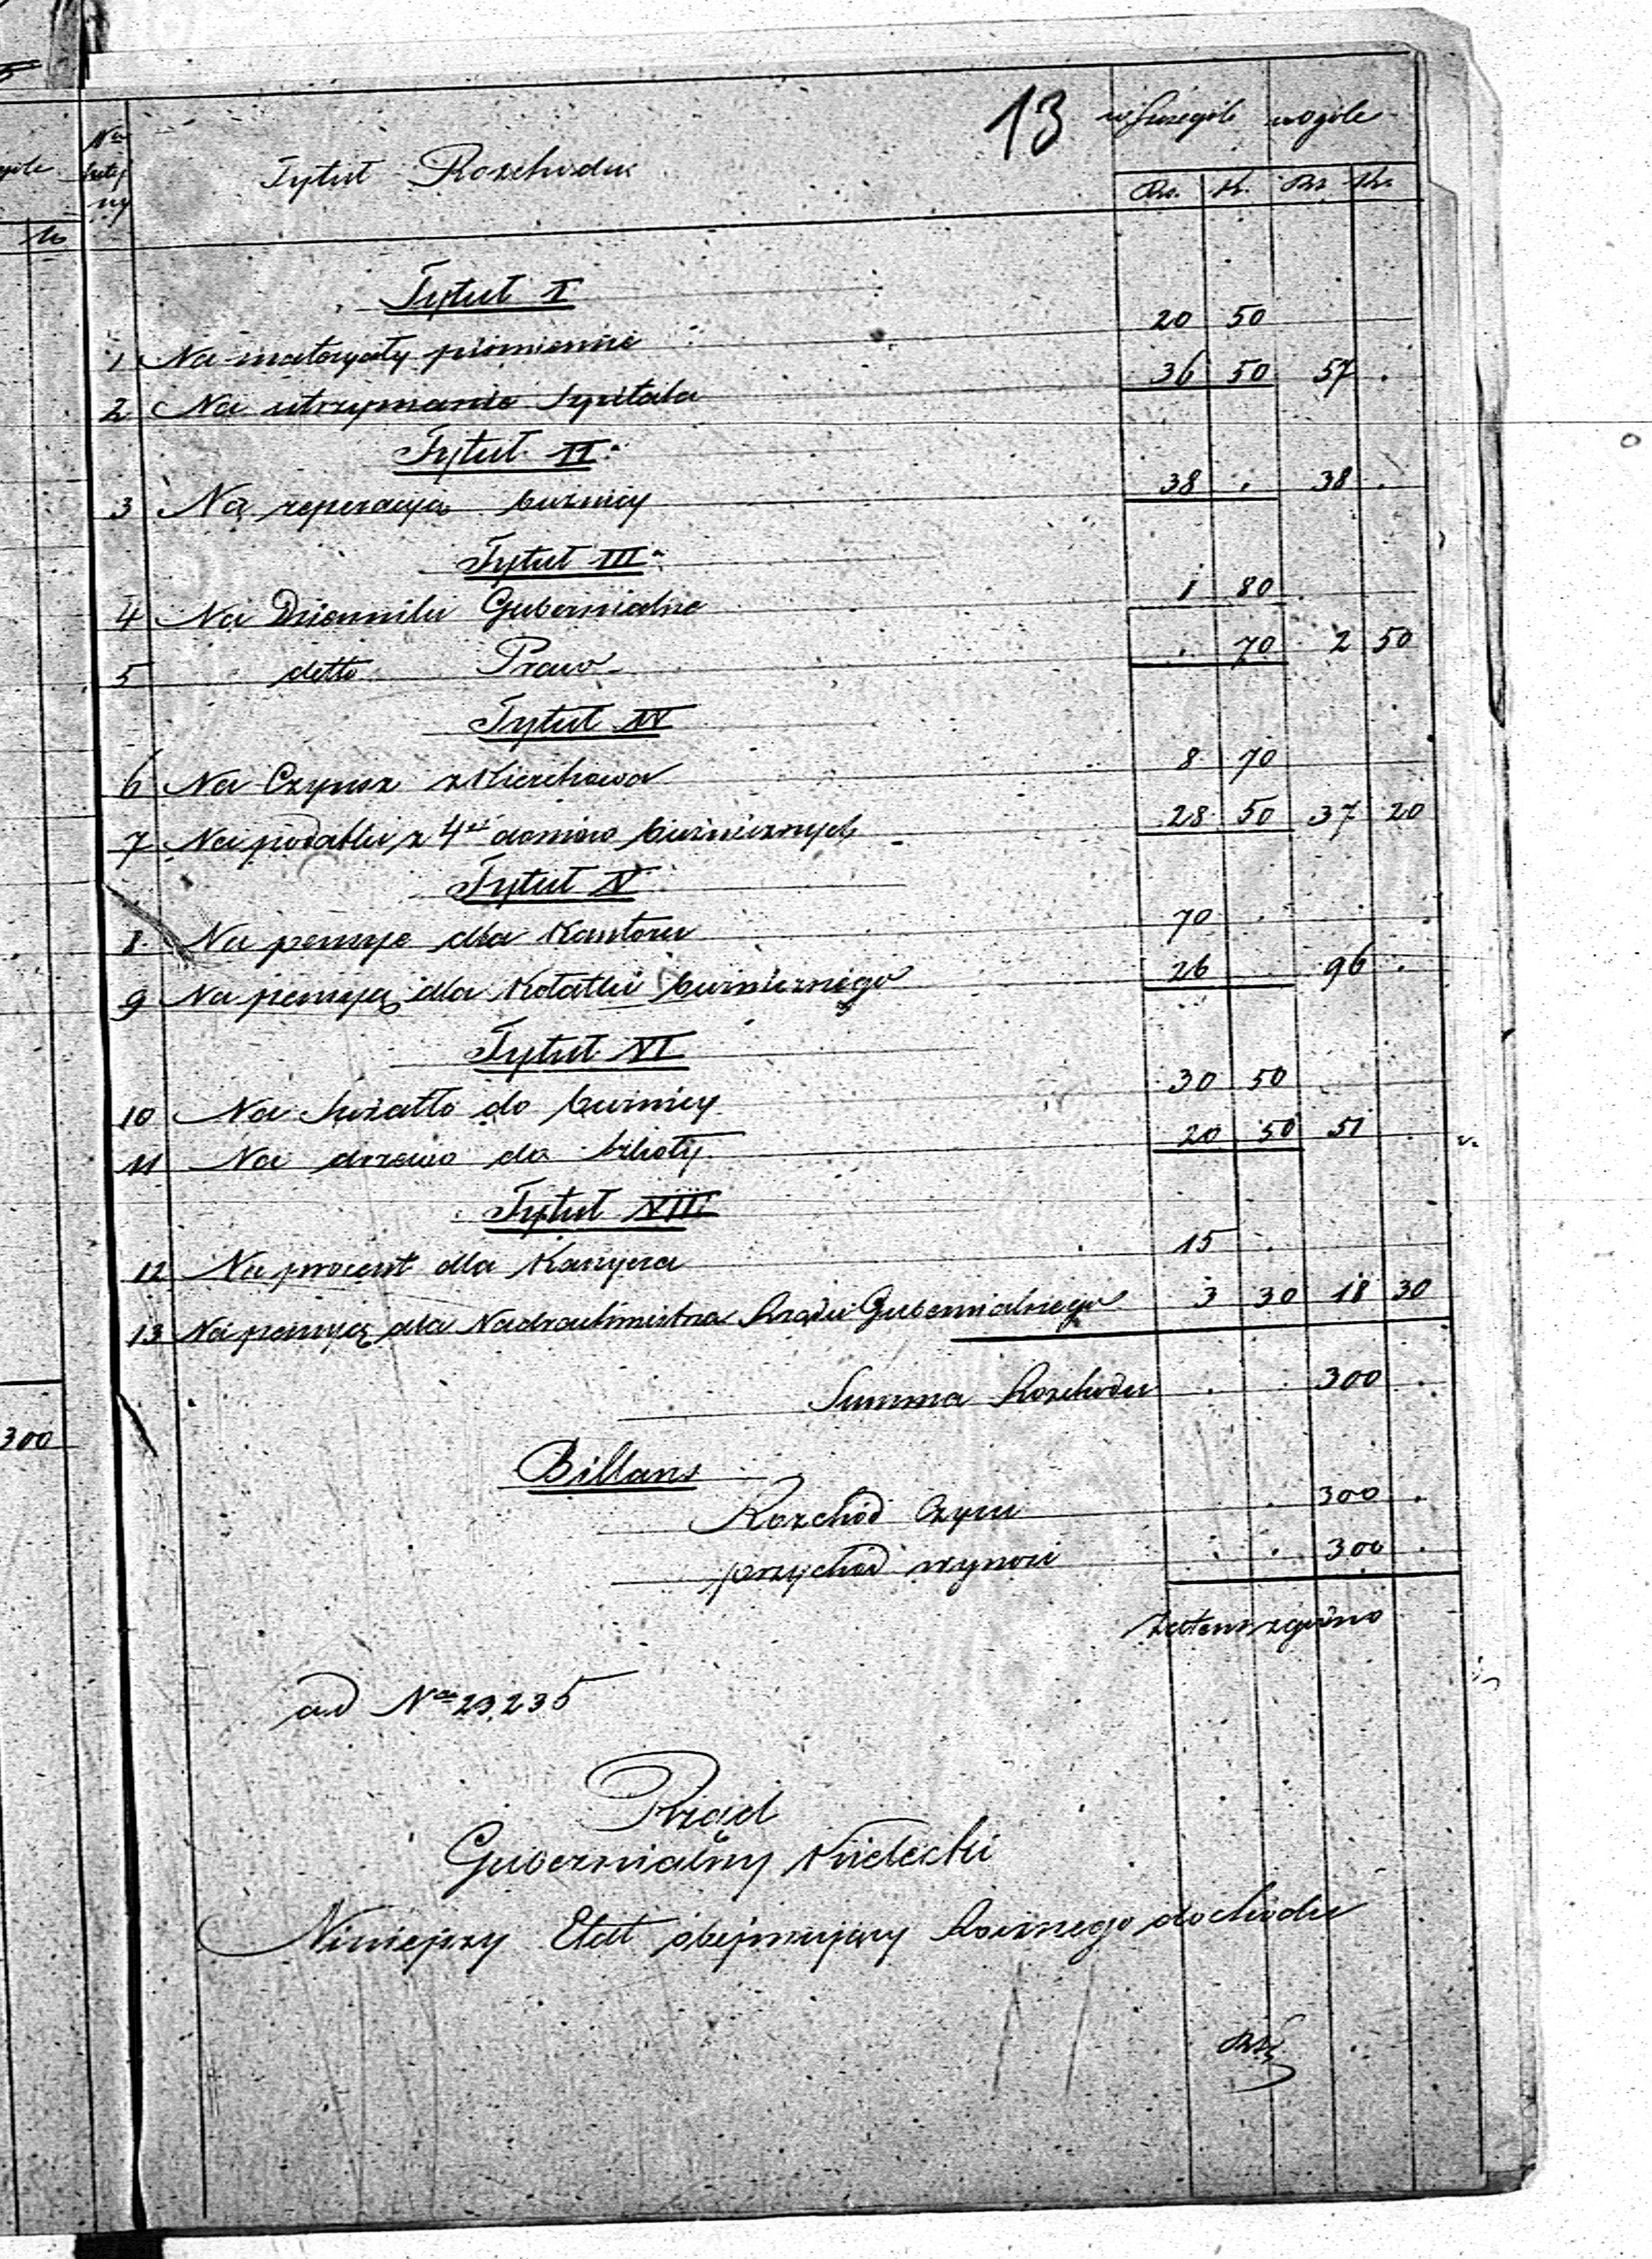 13
w Szczególe wogóle
Nr bieżący Tytuł Rozchodu
Rs. K. Rs K.
Tytuł I
1 Na materyały piśmienne 20 50
2 Na utrzymanie Szpitala 36 50 57 .
Tytuł II
3 Na reperacyą bużnicy 38 . 38 .
Tytuł III
4 Na Dzienniki Gubernialne 1 80
5 detto Praw . 70 2 50
Tytuł IV
6 Na Czynsz z Kierchowa 8 70
7 Na podatki z 4ch domów bużnicznych 28 50 37 20
Tytuł V
8 Na pensye dla Kantora 70 .
9 Na pensyą dla Kołatki bużnicznego 26 . 96 .
Tytuł VI
10 Na Światło do bużnicy 30 50
11 Na drzewo do Szkoły 20 50 51 .
Tytuł VII
12 Na procent dla Kasyera 15 .
13 Na pensyą dla Nadrachmistrza Rządu Gubernialnego 3 30 18 30
Summa Rozchodu . . 300 .
300
Billans
Rozchód Czyni . 300 .
przychód wynosi . . 300 .
Zatem zgodno
ad No 23,235
Rząd
Gubernialny Kielecki
Niniejszy Etat obejmujący Rocznego dochodu